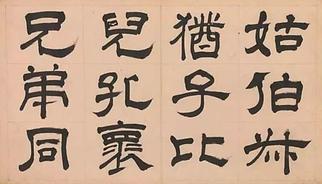 姑伯叔
猶子比
兒孔襄
兄弟同